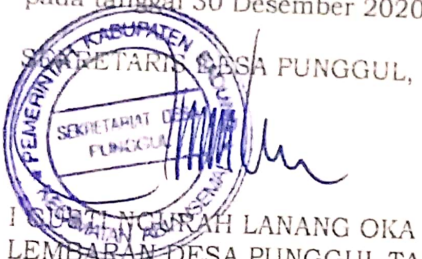 pada tanggal 30 Desember 2020
SEKRETARIS DESA PUNGGUL,
PEMERINTAH KABUPATEN BADUNG
SEKRETARIAT DESA
PUNGGUL
KECAMATAN ABIANSEMAL
I GUSTI NGURAH LANANG OKA
LEMBARAN DESA PUNGGUL TA